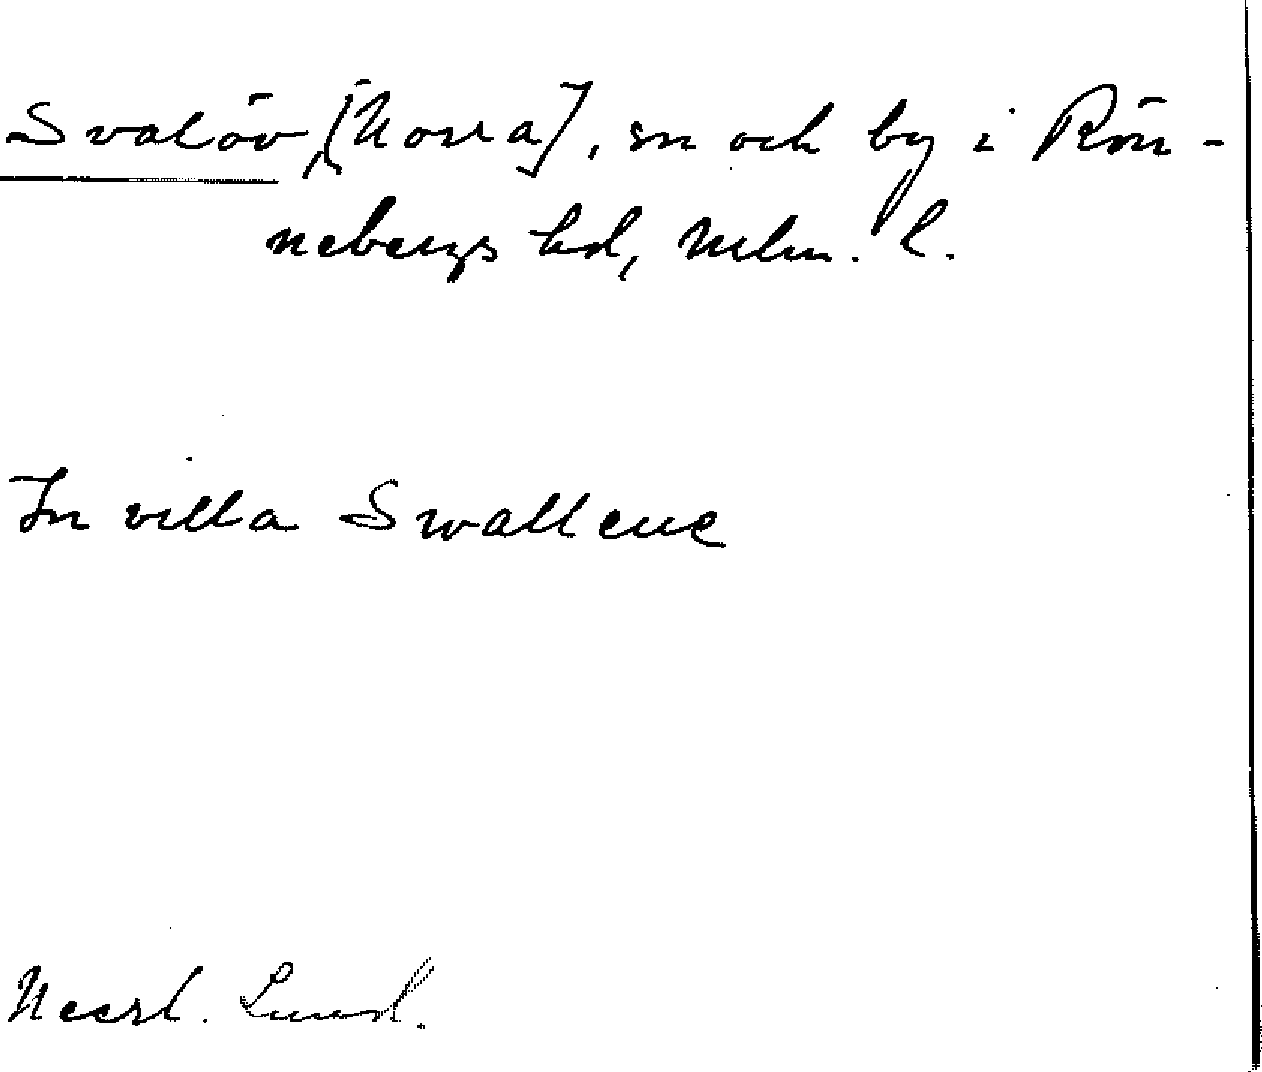 Svalöv, [Norra], sn och by i Rön-
nebergs hd, Mlm. l.
In villa Swalleue
Necrl. Lund.